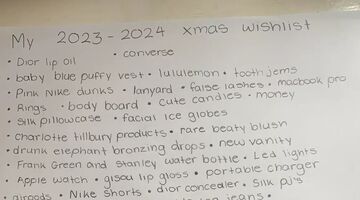 My 2023-2024 xmas wishlist
• converse
• Dior lip oil
• baby blue puffy vest • lululemon • tooth gems
• Pink Nike dunks • lanyard • false lashes • macbook pro
• Rings • body board • cute candles • money
• Silk pillowcase • facial ice globes
• Charlotte tillbury products • rare beaty blush
• drunk elephant bronzing drops • new vanity
• Frank Green and Stanley water bottle • Led lights
• Apple watch • gisou lip gloss • portable charger
airpods • Nike Shorts • dior concealer • Silk pj's
jeans •